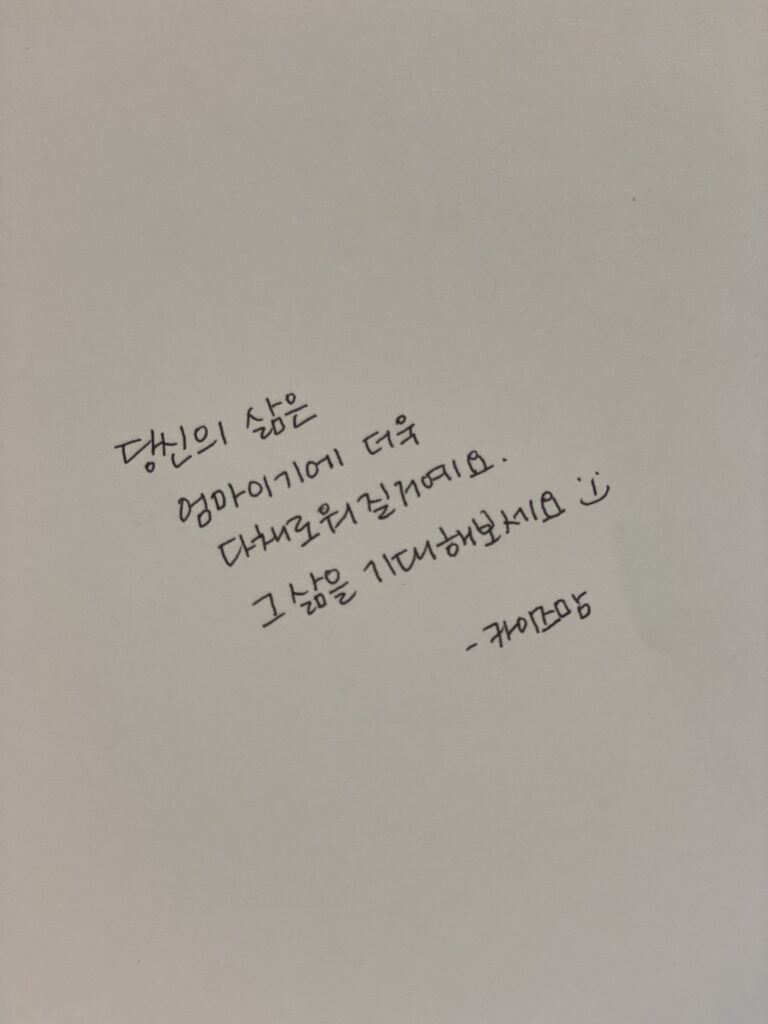 당신의 삶은
엄마이기에 더욱
다채로워질거예요.
그 삶을 기대해보세요 :)
- 카이모맘